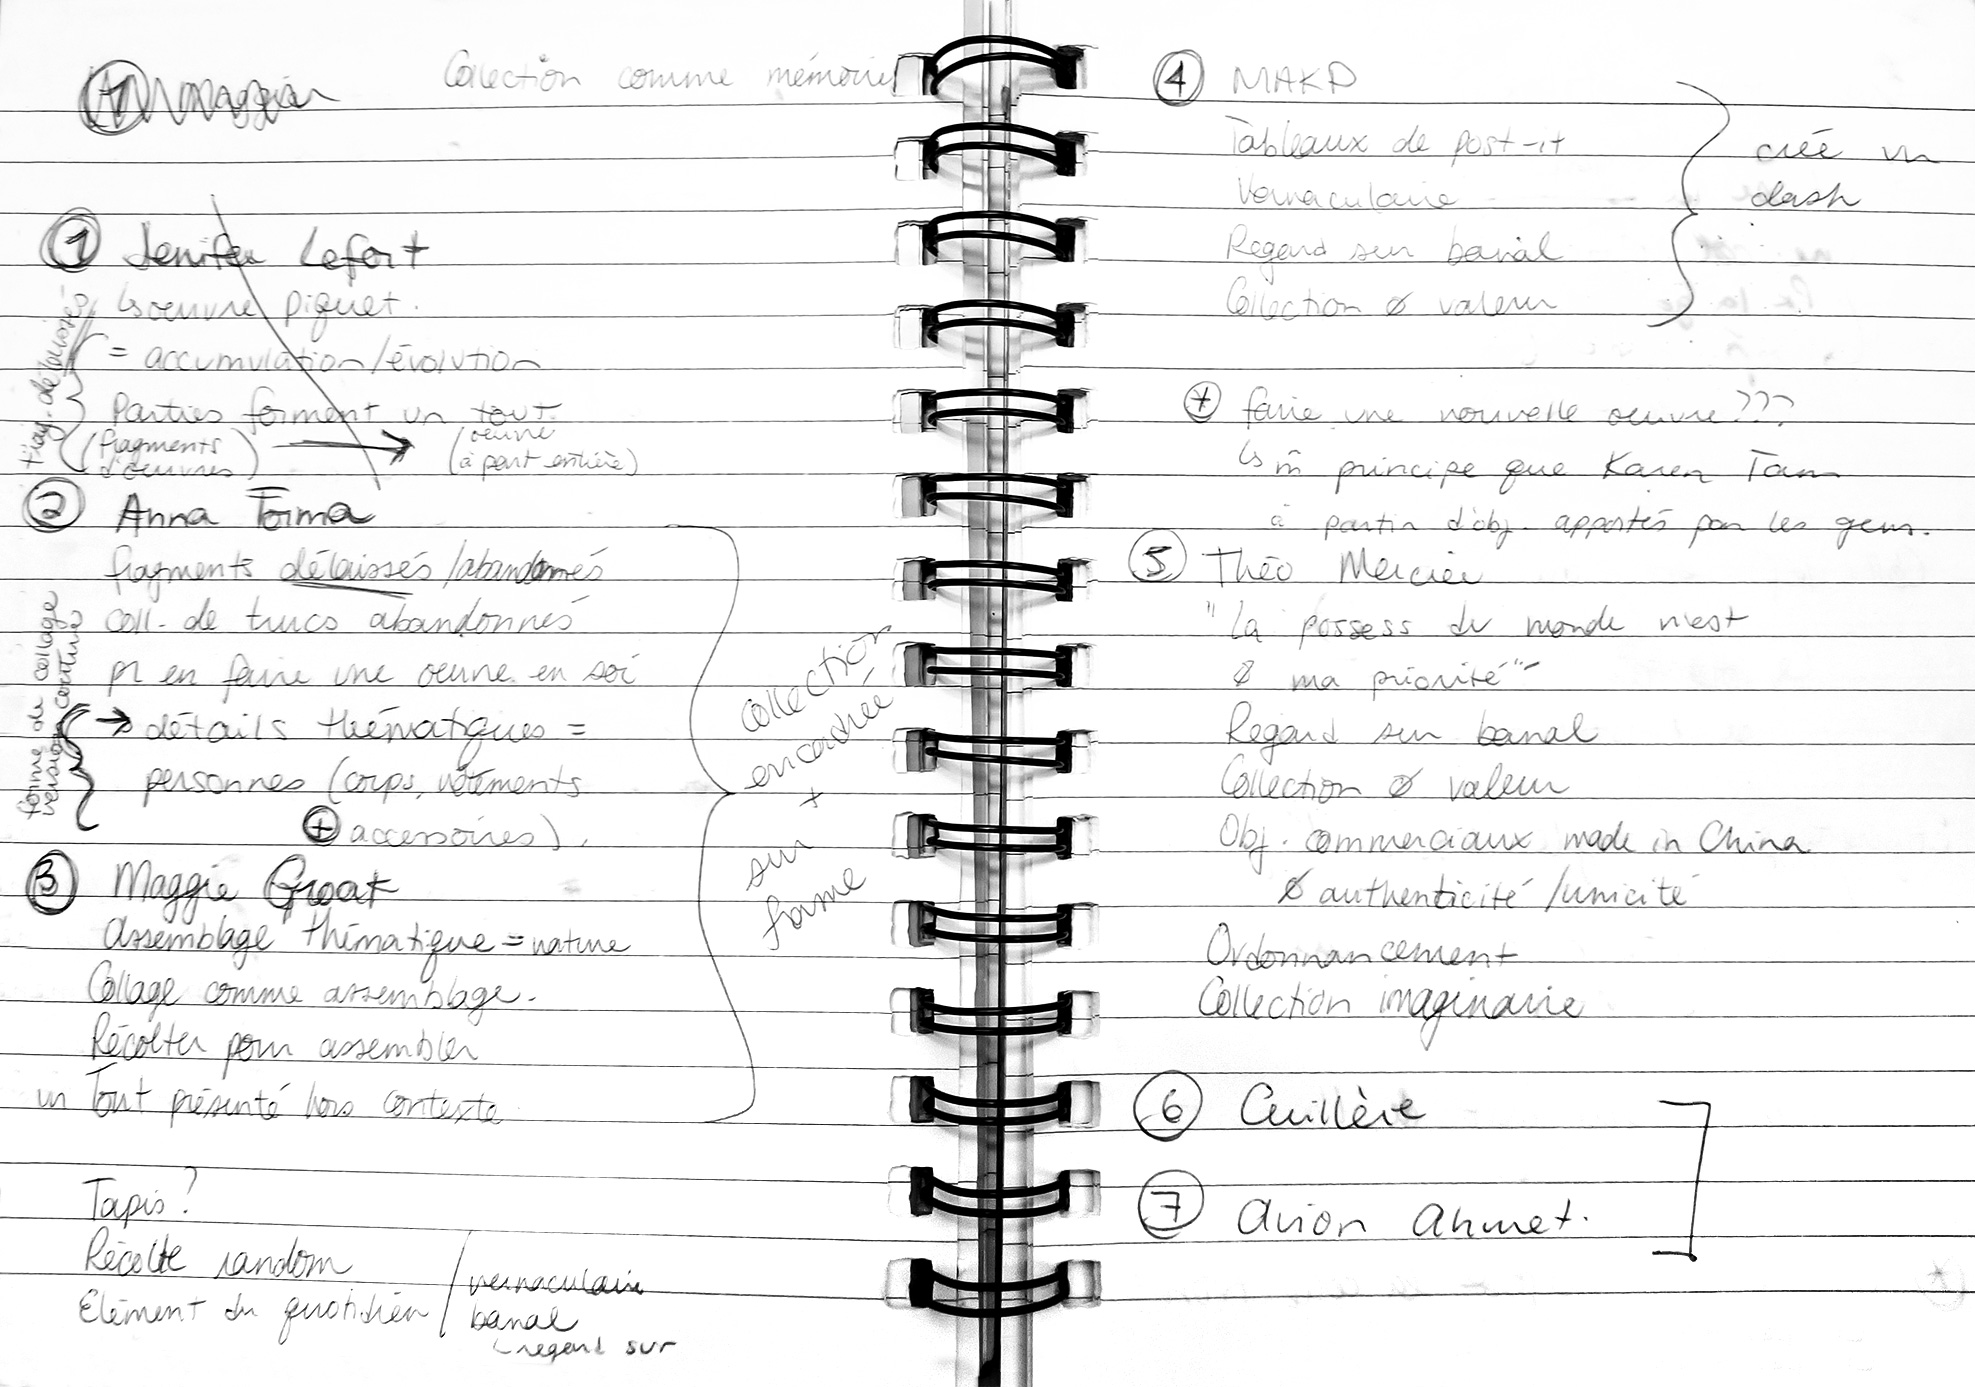 Collection comme mémoire
① Jenifer Lefort
↳ oeuvre piquet.
= accumulation/évolution
Parties forment un tout.
(fragments d'oeuvres) → (oeuvre à part entière)
② Anna Torma
fragments délaissés/abandonnés
coll. de trucs abandonnés
pr en faire une oeuvre en soi
→ détails thématiques =
personnes (corps, vêtements
⊕ accessoires).
forme de collage
version couture
③ Maggie Groat
Assemblage thématique = nature
Collage comme assemblage.
Récolter pour assembler
un Tout présenté hors contexte
collection
encadrée
+
sur
forme
Tapis?
Récolte random
Élément du quotidien / vernaculaire
banal
regard sur
④ MAKD
Tableaux de post-it
Vernaculaire
Regard sur banal
Collection ∅ valeur
créé un
clash
* faire une nouvelle oeuvre???
↳ m̂ principe que Karen Tam
à partir d'obj. apportés par les gens.
⑤ Théo Mercier
"La possess du monde n'est
∅ ma priorité"
Regard sur banal
Collection ∅ valeur
Obj. commerciaux made in China
∅ authenticité/unicité
Ordonnancement
Collection imaginaire
⑥ Cuillère
⑦ Avion Ahmet.